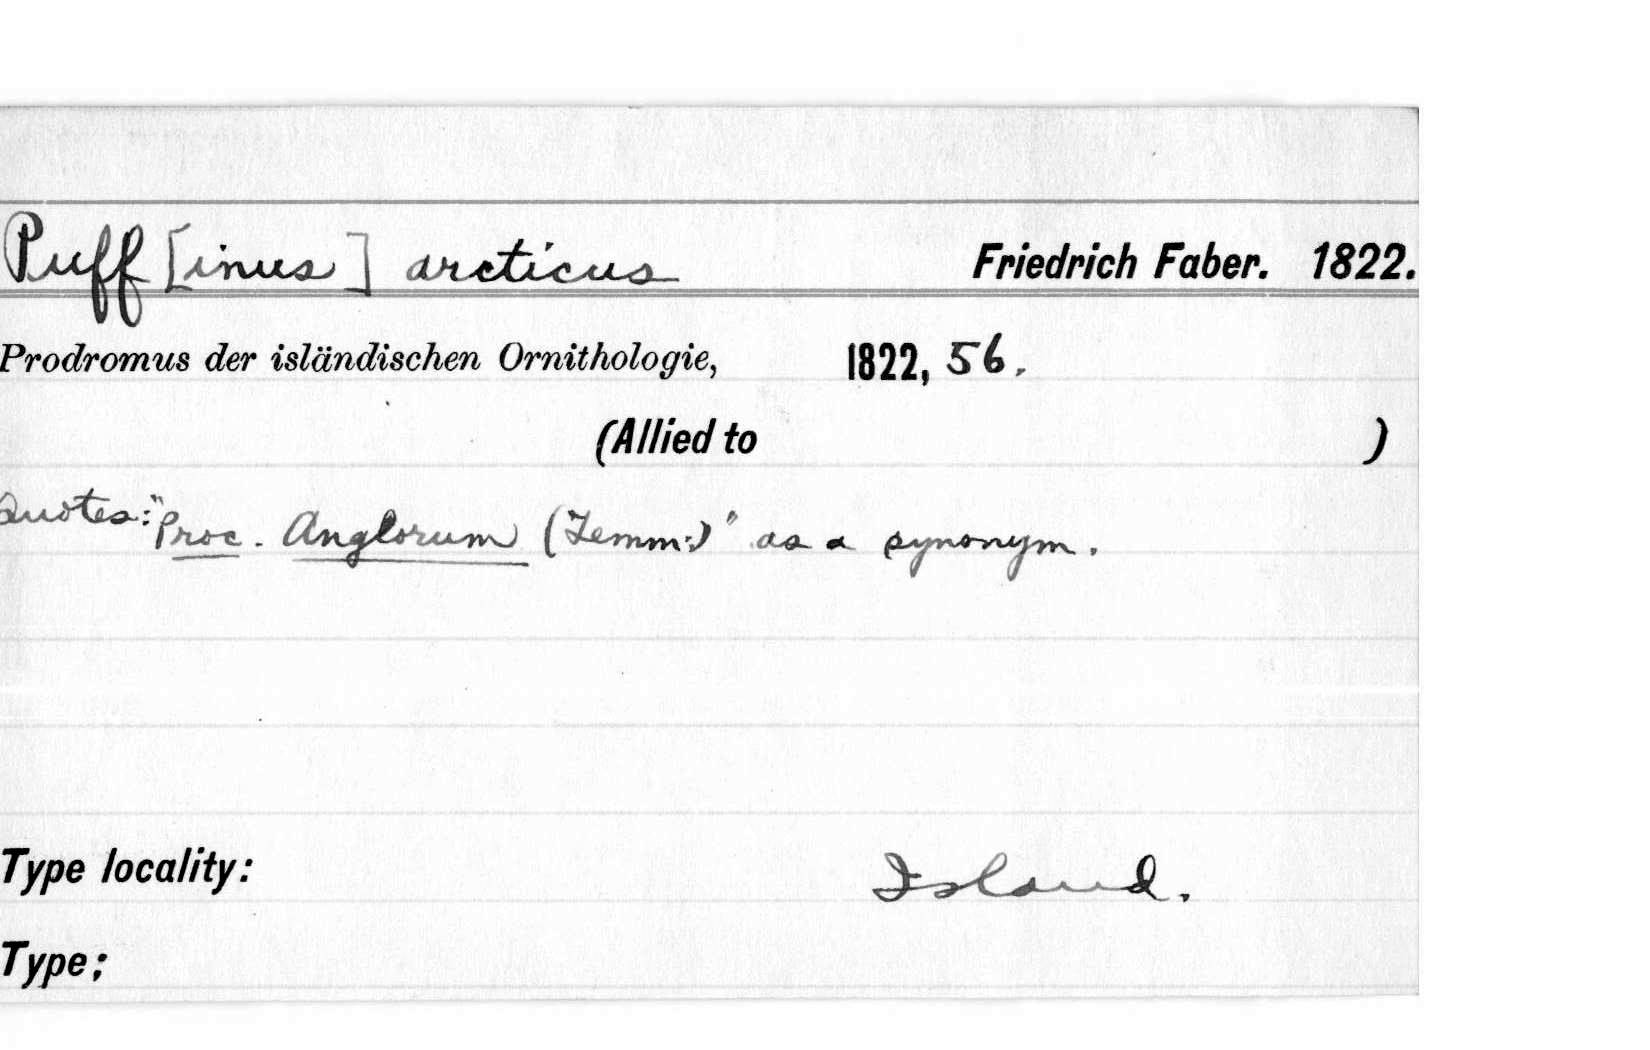 Puff[inus] arcticus Friedrich Faber. 1822.
Prodromus der isländischen Ornithologie, 1822, 56.
(Allied to )
Quotes: "Proc. Anglorum (Temm.)" as a synonym.
Type locality: Island.
Type: